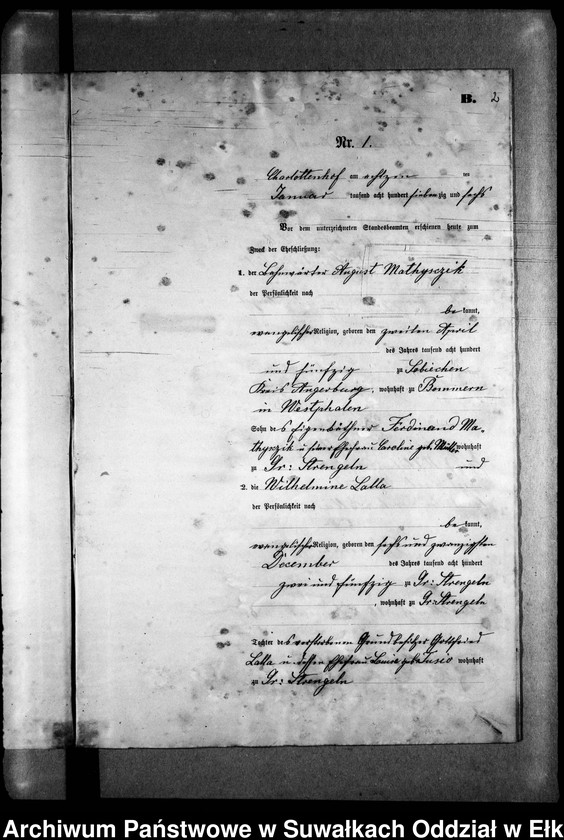 B. 2
Nr. 1.
Charlottenhof am achtzen ten
Januar tausend acht hundert siebenzig und sechs
Vor dem unterzeichneten Standesbeamten erschienen heute zum
Zweck der Eheschließung:
1. der August Mathysczik
der Persönlichkeit nach
be kannt,
evangelischer Religion, geboren den zweiten April
des Jahres tausend acht hundert
und fünfzig zu Sobiechen
Kreis Angerburg, wohnhaft zu Bommern
in Westphalen
Sohn des Eigenkäthner Ferdinand Ma-
thysczik u seiner Ehefrau Caroline geb. wohnhaft
zu Gr: Strengeln und
2. die Wilhelmine Lalla
der Persönlichkeit nach
be kannt,
evangelischer Religion, geboren den sechs und zwanzigsten
December des Jahres tausend acht hundert
zwei und fünfzig zu Gr: Strengeln
, wohnhaft zu Gr: Strengeln
Tochter des verstorbenen Grundbesitzer Gottfried
Lalla u dessen Ehefrau Louise geb wohnhaft
zu Gr: Strengeln
Archiwum Państwowe w Suwałkach Oddział w Ełk